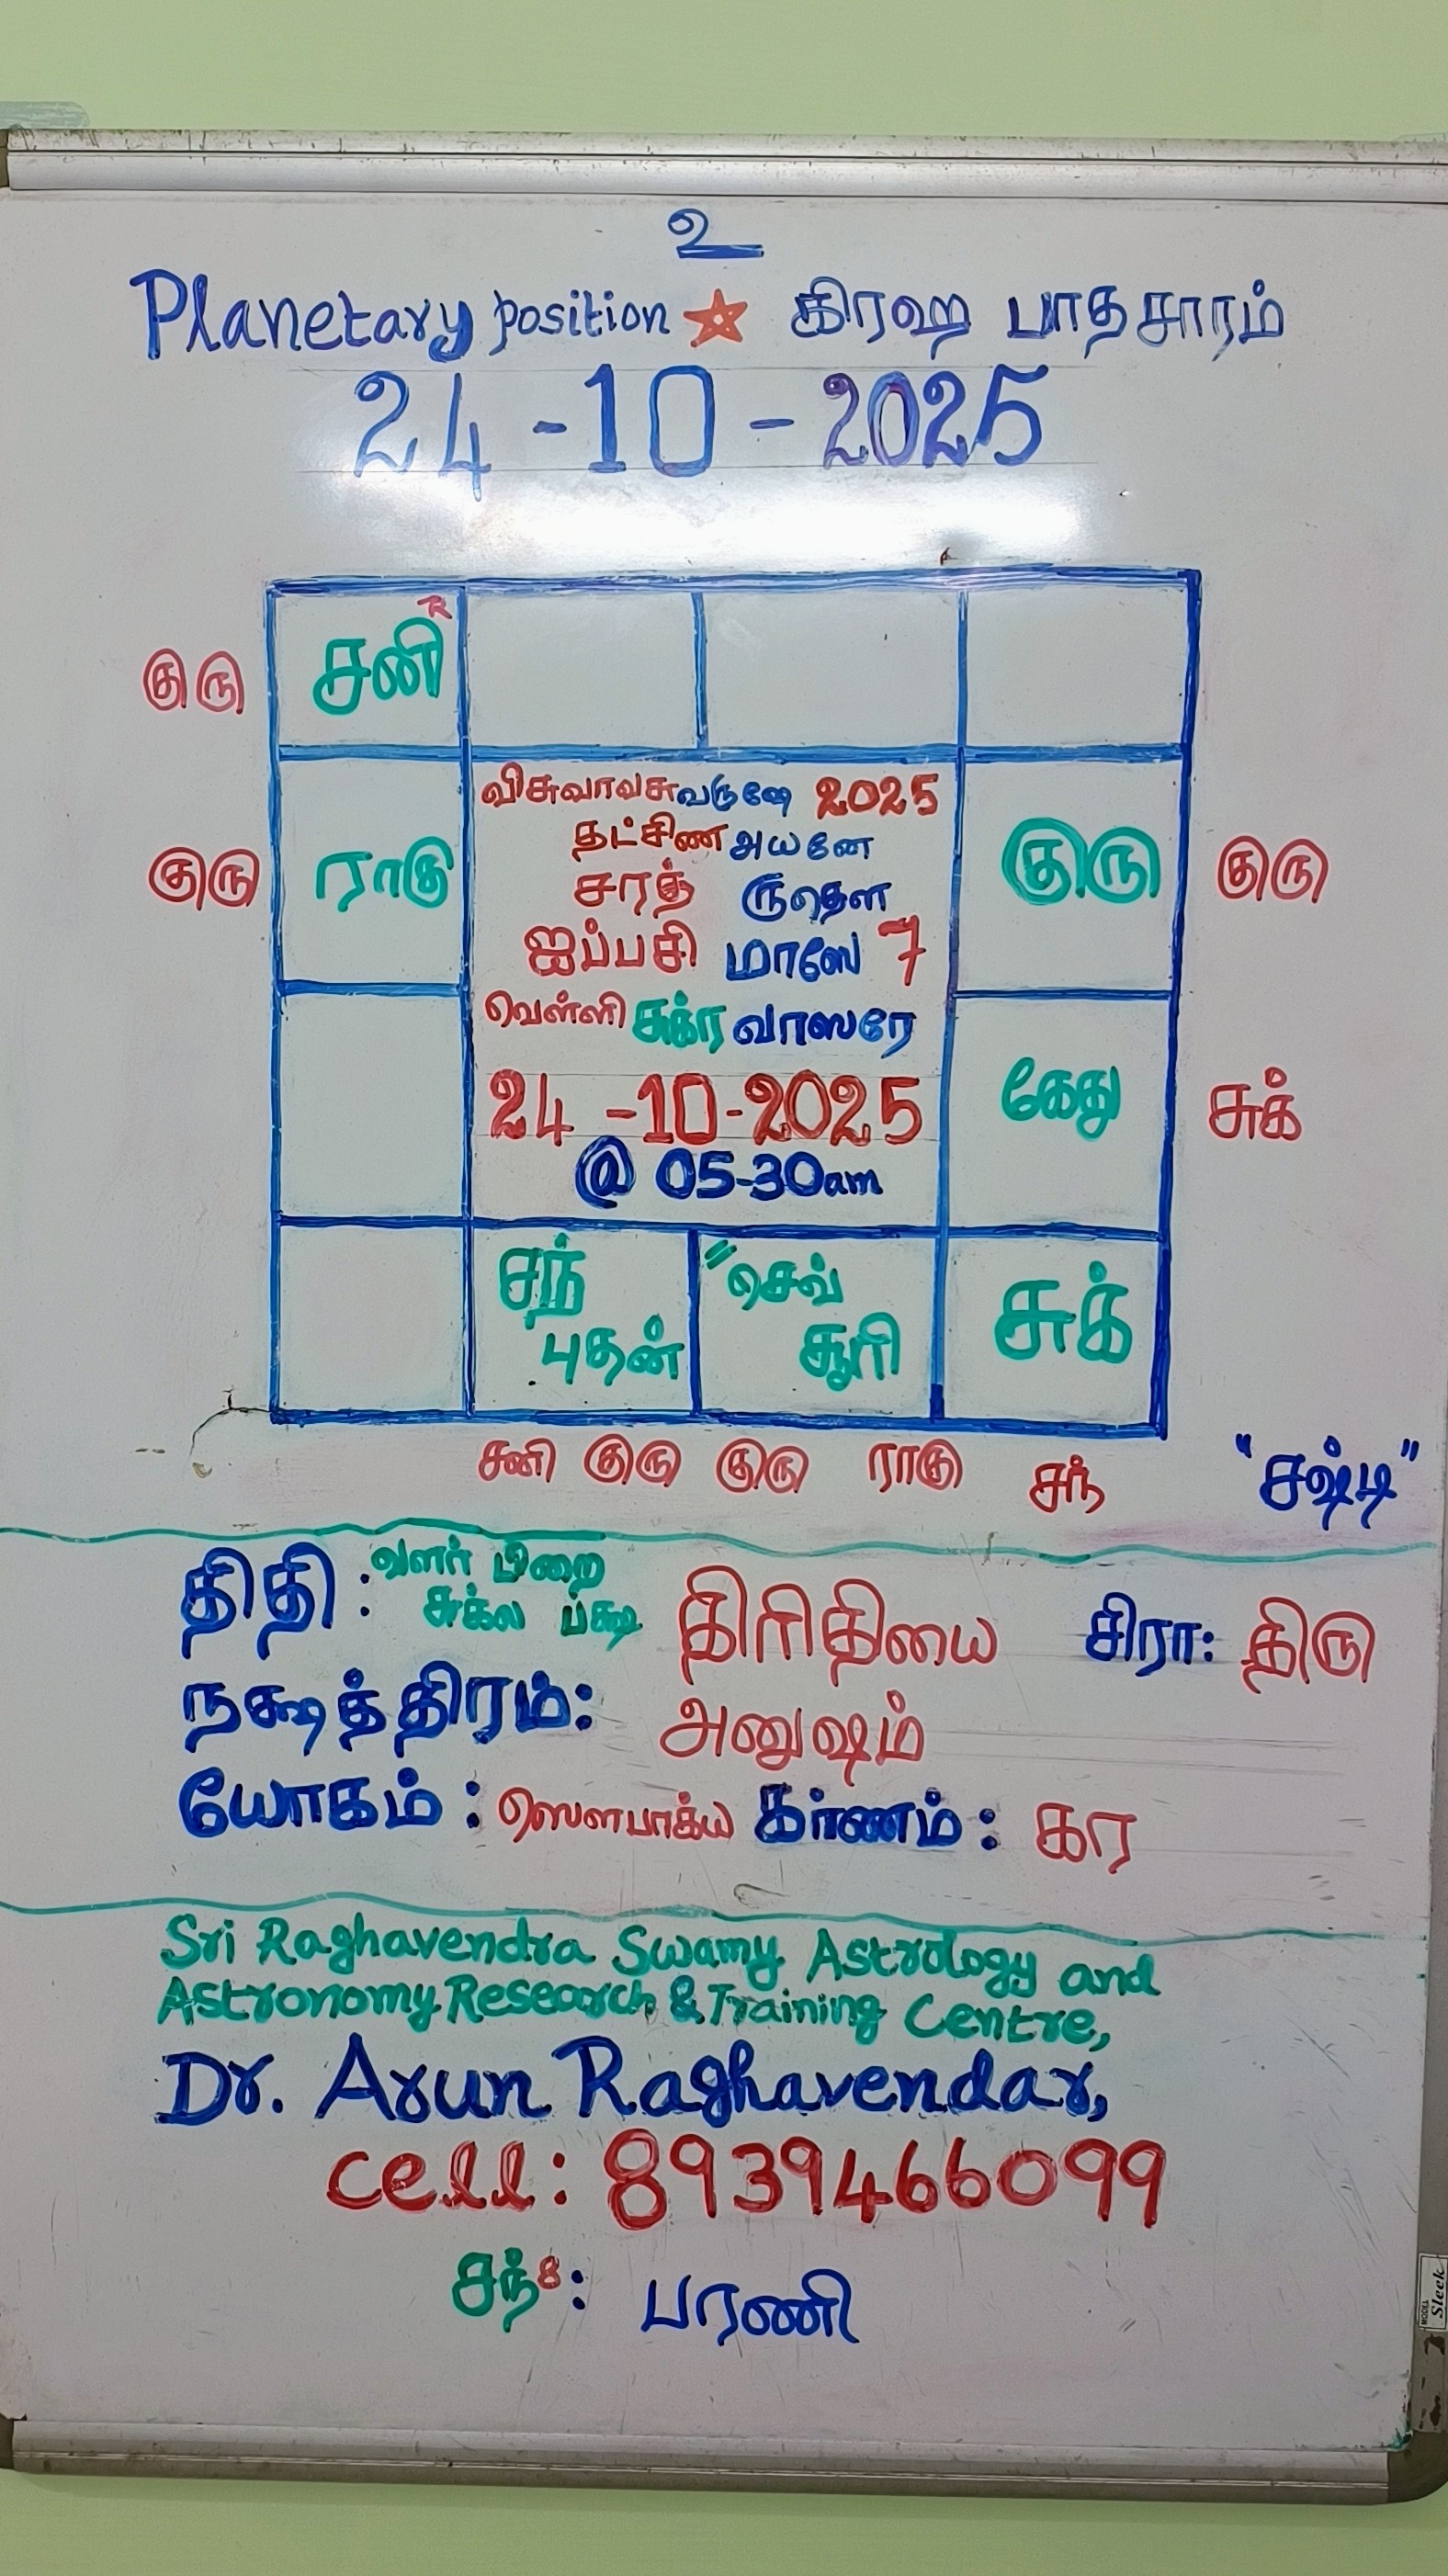 உ
Planetary position ☆ கிரஹ பாதசாரம்
24-10-2025
சனி R
குரு
விசுவாவசு வருஷே 2025
தட்சிண அயனே
சரத் ருதௌ
ஐப்பசி மாஸே 7
வெள்ளி சுக்ர வாஸரே
24-10-2025
@ 05-30am
குரு ராகு
குரு குரு
கேது சுக்
சந் புதன்
"செவ் சூரி
சுக்
சனி குரு குரு ராகு சந் "சஷ்டி"
திதி: வளர் பிறை சுக்ல பக்ஷ திரிதியை சிரா: திரு
நக்ஷத்திரம்: அனுஷம்
யோகம்: ஸௌபாக்ய கர்ணம்: கர
Sri Raghavendra Swamy Astrology and
Astronomy Research & Training Centre,
Dr. Arun Raghavendar,
cell: 8939466099
சந்8: பரணி
MODEL Sleek